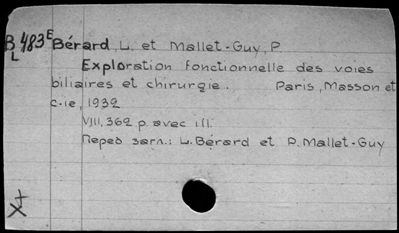 B 483E Bérard, L. et Mallet-Guy, P.
L
Exploration fonctionnelle des voies
biliaires et chirurgie. Paris, Masson et
c-ie, 1932
VIII, 362 p. avec ill.
Перед загл.: L. Bérard et P. Mallet-Guy
X